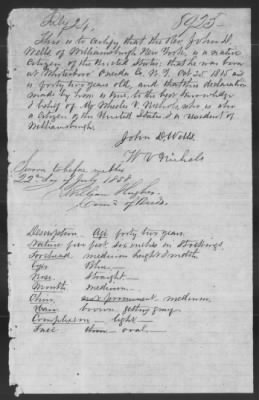 July 24. 8925
This is to certify that the Rev. John D.
Wells of Williamsburgh New York, is a native
citizen of the United States; that he was born
at Whitesboro Oneida Co. N.Y. Oct 25 1815 and
is forty two years old, and that the declaration
made by him is true, to the best knowledge
& belief of Mr Wheeler V. Nichols, who is also
a citizen of the United States & resident of
Williamsburgh.
John D. Wells
W V Nichols
Sworn to before me this
22nd day of July 1858.
William Hughes
Com'r of Deeds.
Description. Age forty two years.
Stature five feet six inches in stockings.
Forehead medium height & width
Eyes Blue
Nose Straight
Mouth medium
Chin not prominent medium
Hair brown getting gray
Complexion light
Face thin oval